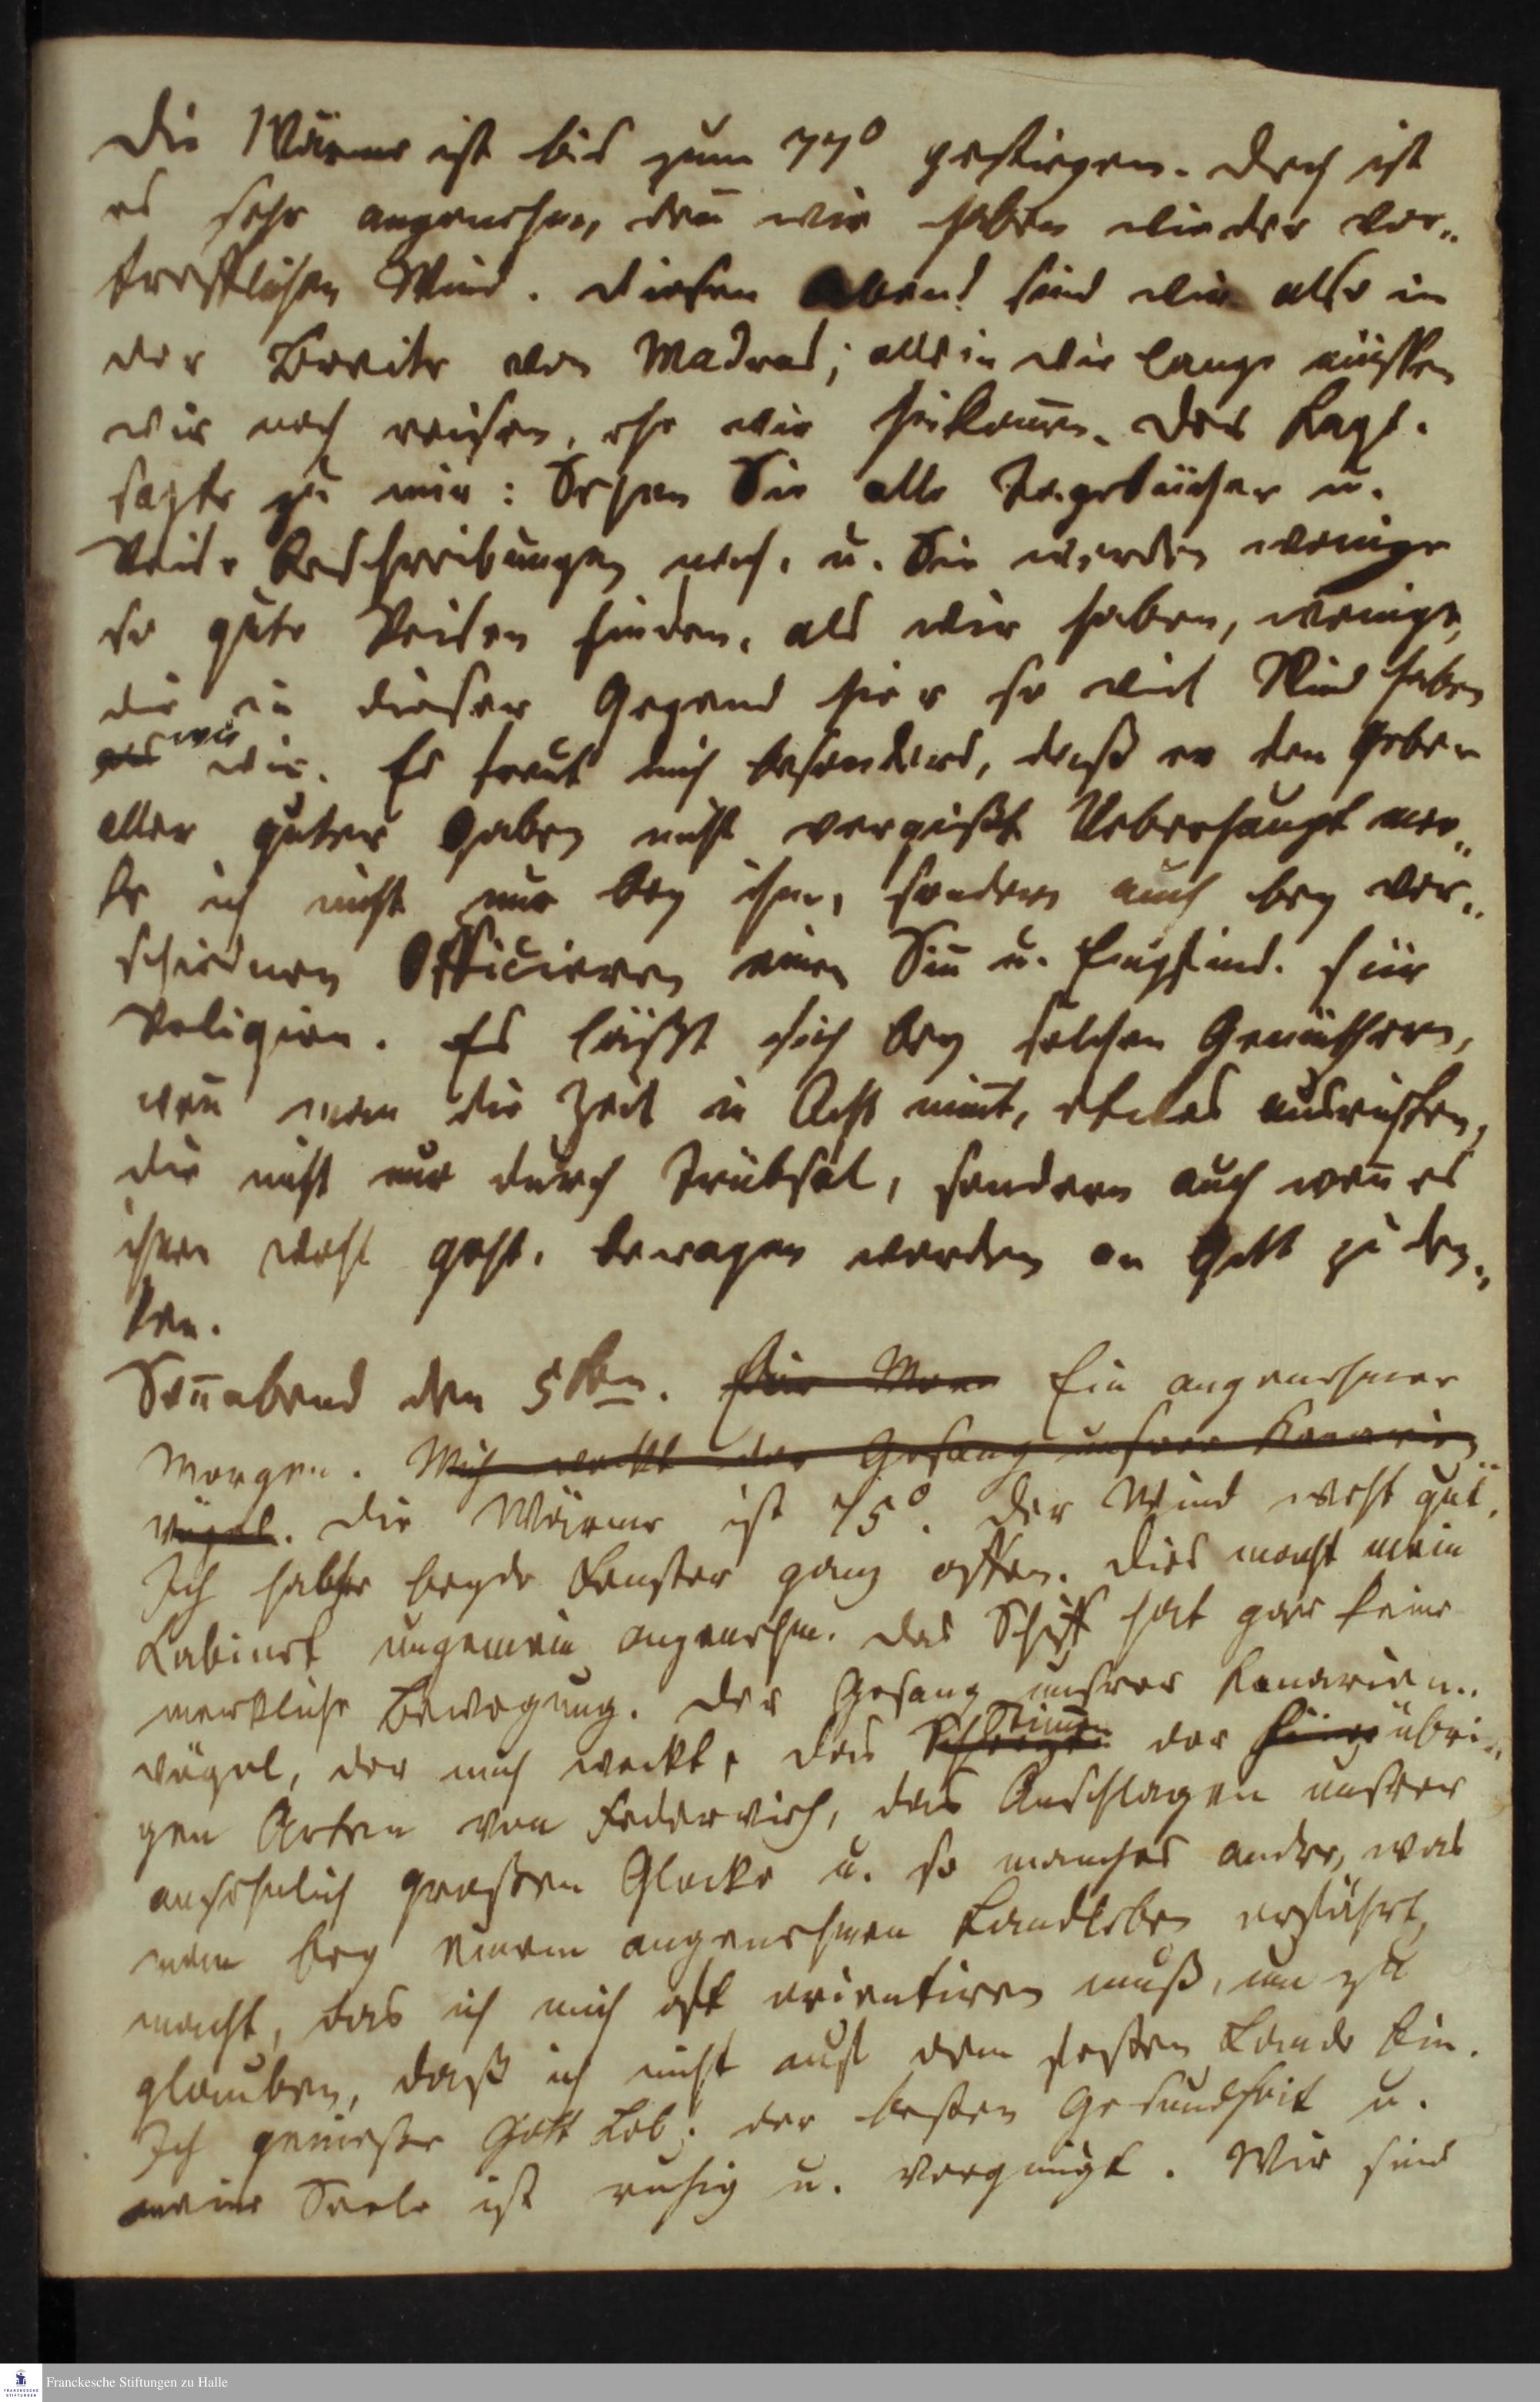 Die Wärme ist bis zum 77° gestiegen. Doch ist
es sehr angenehm, deñ wir haben wieder vor„
trefflichen Wind. Diesen Abend sind wir also in
der Breite von Madras; allein wie lange müssen
wir noch reisen, ehe wir hinkom̄en. Der Kapt.
sagte zu mir: Sehen Sie alle Tagebücher u.
Reise Beschreibungen nach, u. Sie werden wenige
so gute Reisen finden, als wir haben, wenige,
die in dieser Gegend hier so viel Wind haben
als wie wir. Es freut mich besonders, daß er den Geber
aller guter Gaben nicht vergißt. Ueberhaupt mer„
ke ich nicht nur bey ihm, sondern auch bey ver„
schiednen Officieren einen Siñ u. Empfind. für
Religion. Es läßt sich bey solchen Gemüthern,
weñ man die Zeit in Acht nim̄t, etwas ausrichten,
die nicht nur durch Trübsal, sondern auch weñ es
ihnen wohl geht, bewogen werden an Gott zu den„
ken.
Soñabend den 5ten. Ein angenehmer
Morgen. Mich weckt der Gesang unsrer Kanarien„
vögel. Die Wärme ist 75°. Der Wind weht gut.
Ich habe beyde Fenster ganz offen. Dies macht mein
Cabinet ungemein angenehm. Das Schiff hat gar keine
merkliche Bewegung. Der Gesang unsrer Kanarien„
vögel, der mich weckt, das Stim̄en der übri„
gen Arten von Federvieh, das Anschlagen unsrer
ansehnlich großen Glocke u. so manches andre, was
man bey einem angenehmen Landleben erfährt,
macht, das ich mich oft orientiren muß, um zu
glauben, daß ich nicht auf dem festen Lande bin.
Ich genieße Gott Lob! der besten Gesundheit u.
meine Seele ist ruhig u. vergnügt. Wir sind
Franckesche Stiftungen zu Halle